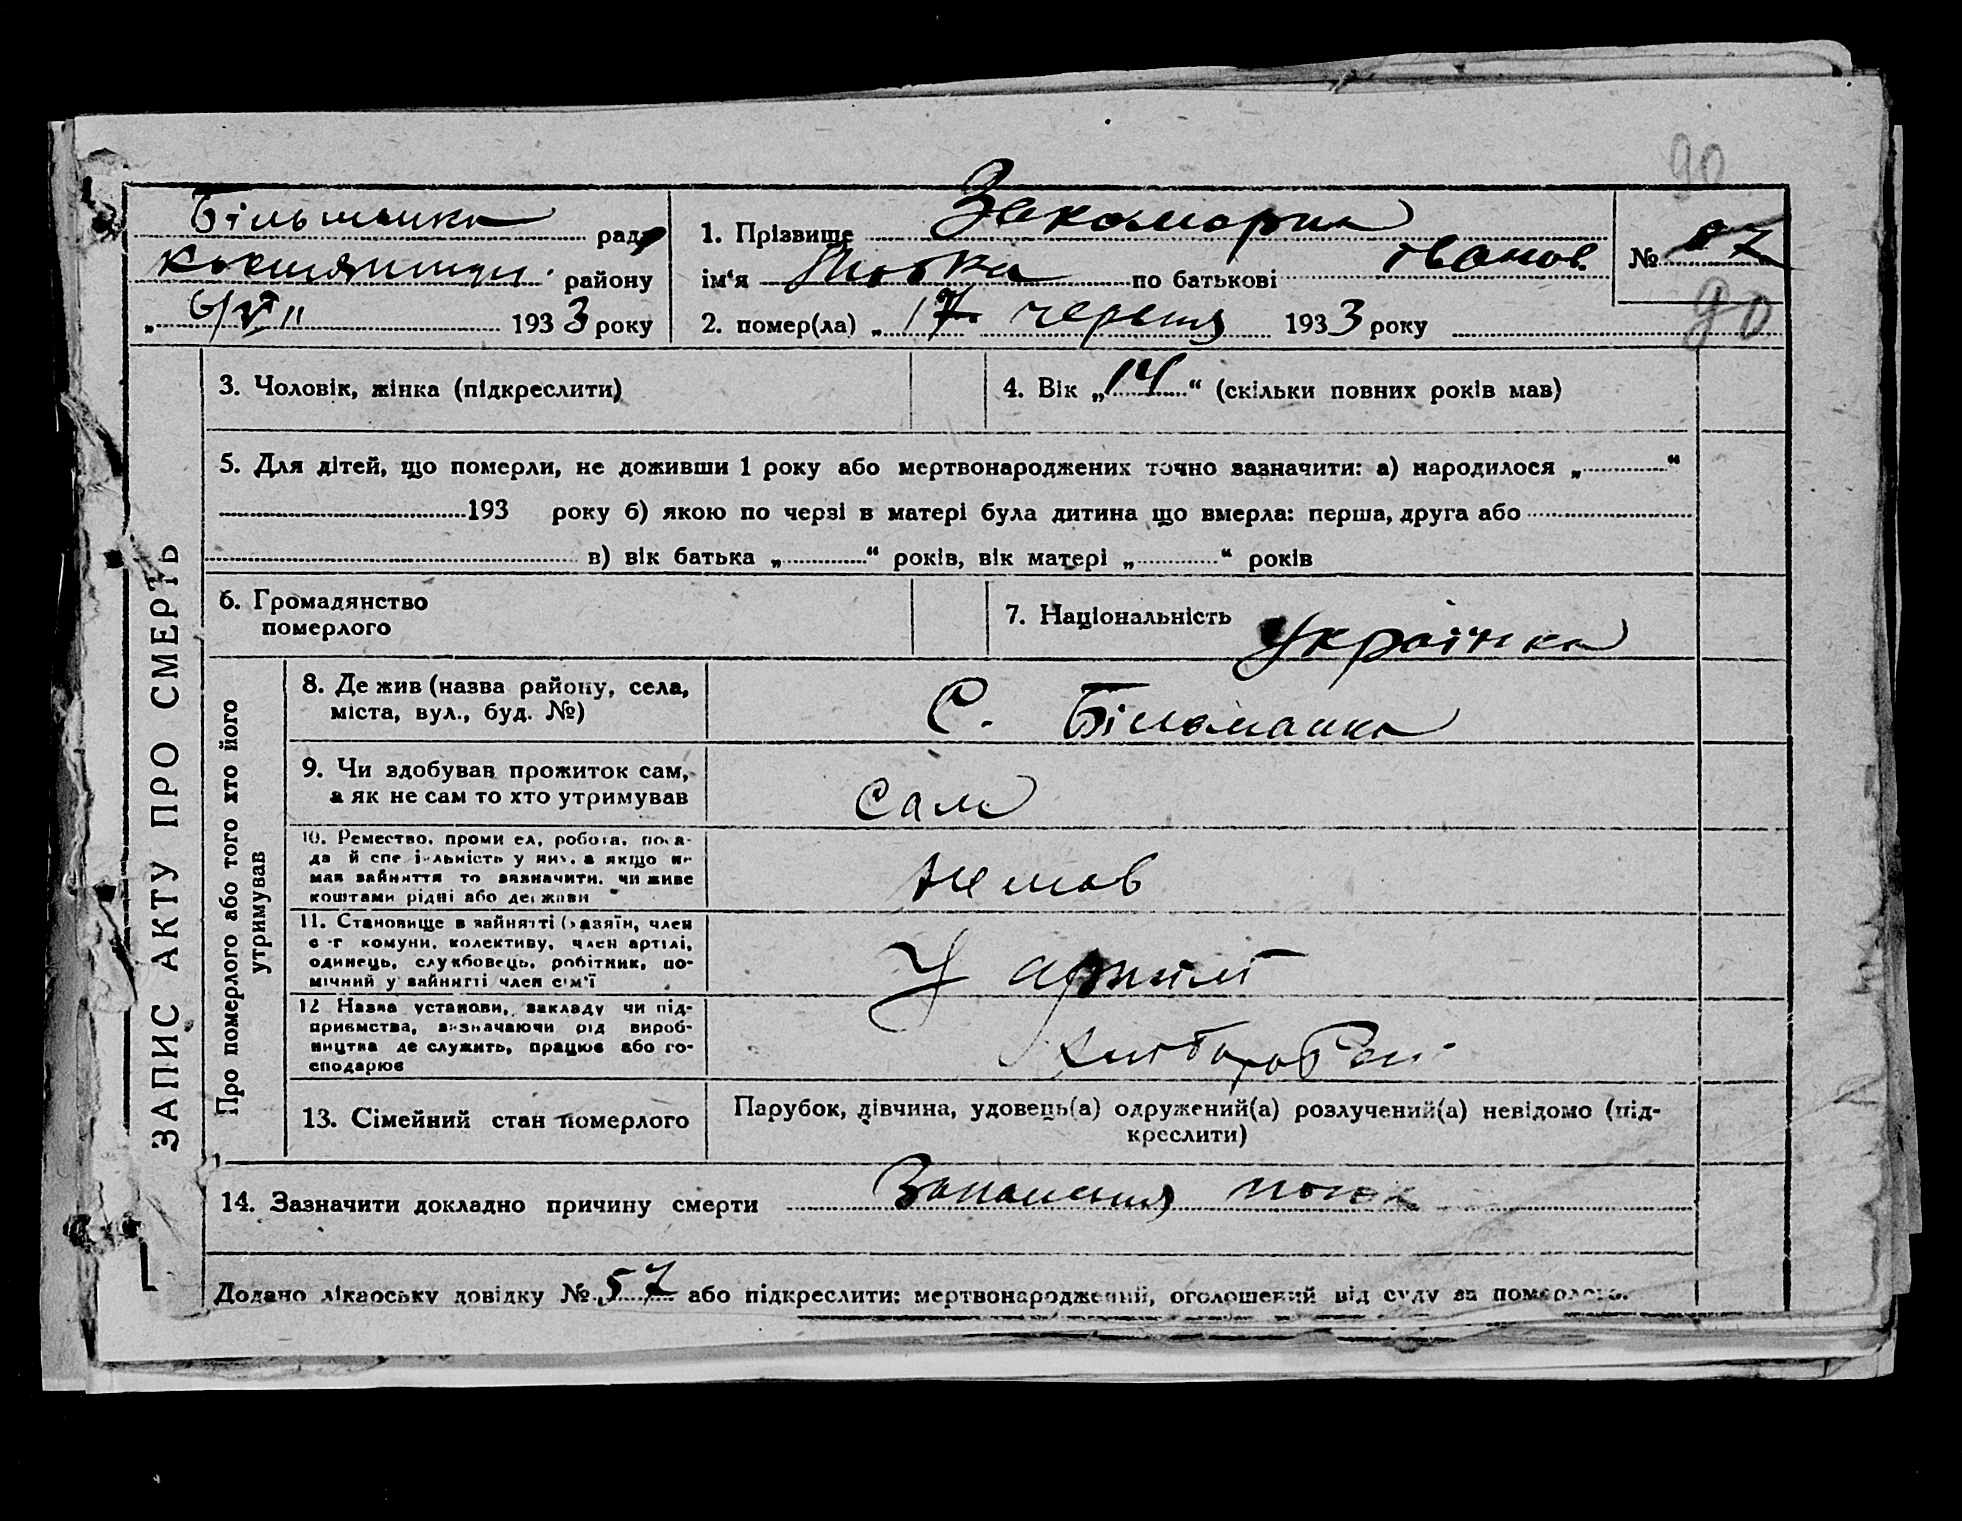 90
Більманка рада
району
„ 6/VI " 1933 року
1. Прізвище Закоморна
ім'я по батькові Іванов.
2. помер(ла) „ 17 червня 1933 року
№ 87
90
ЗАПИС АКТУ ПРО СМЕРТЬ
3. Чоловік, жінка (підкреслити)
4. Вік „14“ (скільки повних років мав)
5. Для дітей, що померли, не доживши 1 року або мертвонароджених точно зазначити: а) народилося „ “
193 року б) якою по черзі в матері була дитина що вмерла: перша, друга або
в) вік батька „ “ років, вік матері „ “ років
6. Громадянство
померлого
7. Національність Українка
Про померлого або того хто його
утримував
8. Де жив (назва району, села,
міста, вул., буд. №)
С. Більманка
9. Чи здобував прожиток сам,
а як не сам то хто утримував
Сам
10. Ремество, промисел, робота, поса-
да й спеціяльність у них, а якщо не
мав зайняття то зазначити, чи живе
коштами рідні або держави
Не мав
11. Становище в зайнятті (хазяїн, член
с-г комуни, колективу, член артілі,
одинець, службовець, робітник, по-
мічний у зайнятті член сім'ї
У артілі
12 Назва установи, закладу чи під-
приємства, визначаючи рід вироб-
ництва де служить, працює або го-
сподарює
13. Сімейний стан померлого
Парубок, дівчина, удовець(а) одружений(а) розлучений(а) невідомо (під-
креслити)
14. Зазначити докладно причину смерти Запалення
Додано лікарську довідку № 57 або підкреслити: мертвонароджений, оголошений від суду за померлого.